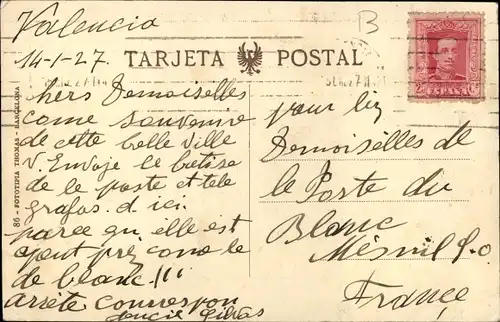 Valencia
14-1-27.
B
TARJETA POSTAL
25 Cs
ESPAÑA
chers Demoiselles
come souvenir
de cette belle ville
V. Envoje le betise
de le poste et tele
grafos. d. ici.
parce qu'elle est
ajout prez como le
de blanc!!!
arréte courrespon
Lucie
pour les
Demoiselles de
le Poste du
Blanc
Mésnil S.O.
Françe
86 - FOTOTIPIA THOMAS - BARCELONA